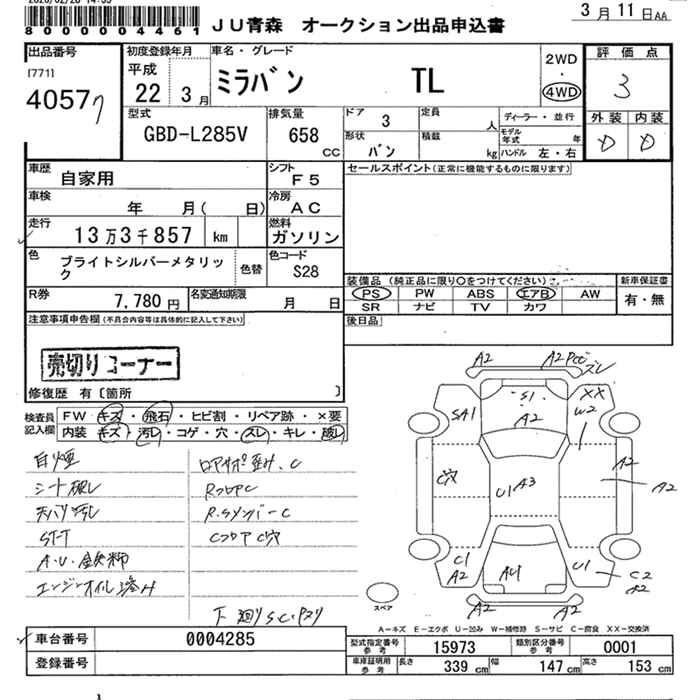 3月11日AA
8000004461
JU青森 オークション出品申込書
出品番号
[771]
4057
初度登録年月
平成
22 3月
車名・グレード
ミラバン TL
2WD
・
4WD
評価点
3
外装 内装
D D
型式
GBD-L285V
排気量
658
CC
ドア
3
定員
人
形状
バン
積載
kg
ディーラー・並行
モデル年式 年
ハンドル 左・右
車歴
自家用
シフト
F5
車検
年 月( 日)
冷房
AC
走行
13万3千857 km
燃料
ガソリン
色
ブライトシルバーメタリック
色替
色コード
S28
R券
7,780円
名変通知期限
月 日
セールスポイント(正常に機能するものに限ります)
装備品(純正品に限り○をつけてください)
PS PW ABS エアB AW
SR ナビ TV カワ
新車保証書
有・無
後日品
注意事項申告欄(不具合内容等は具体的に記入して下さい)
売切りコーナー
修復歴 有〔箇所 〕
検査員記入欄
FW キズ・飛石・ヒビ割・リペア跡・×要
内装 キズ・汚レ・コゲ・穴・スレ・キレ・破レ
白煙
シート破レ
天バリ汚レ
ST-T
A・U・鉄粉
エンジンオイル滲み
ロアサポ歪み、C
RフロアC
R.SメンバーC
CフロアC穴
A2 A2
ズレ
SA1
S1
A2
XX
W2
C穴
U1 A3
A2
A2
C1
A2
A4
U1
C2
A2
A2 A2
スペア
A-キズ E-エクボ U-凹み W-補修跡 S-サビ C-腐食 XX-交換済
車台番号 0004285
登録番号
型式指定番号参考 15973
類別区分番号参考 0001
車庫証明用参考
長さ 339 cm
幅 147 cm
高さ 153 cm